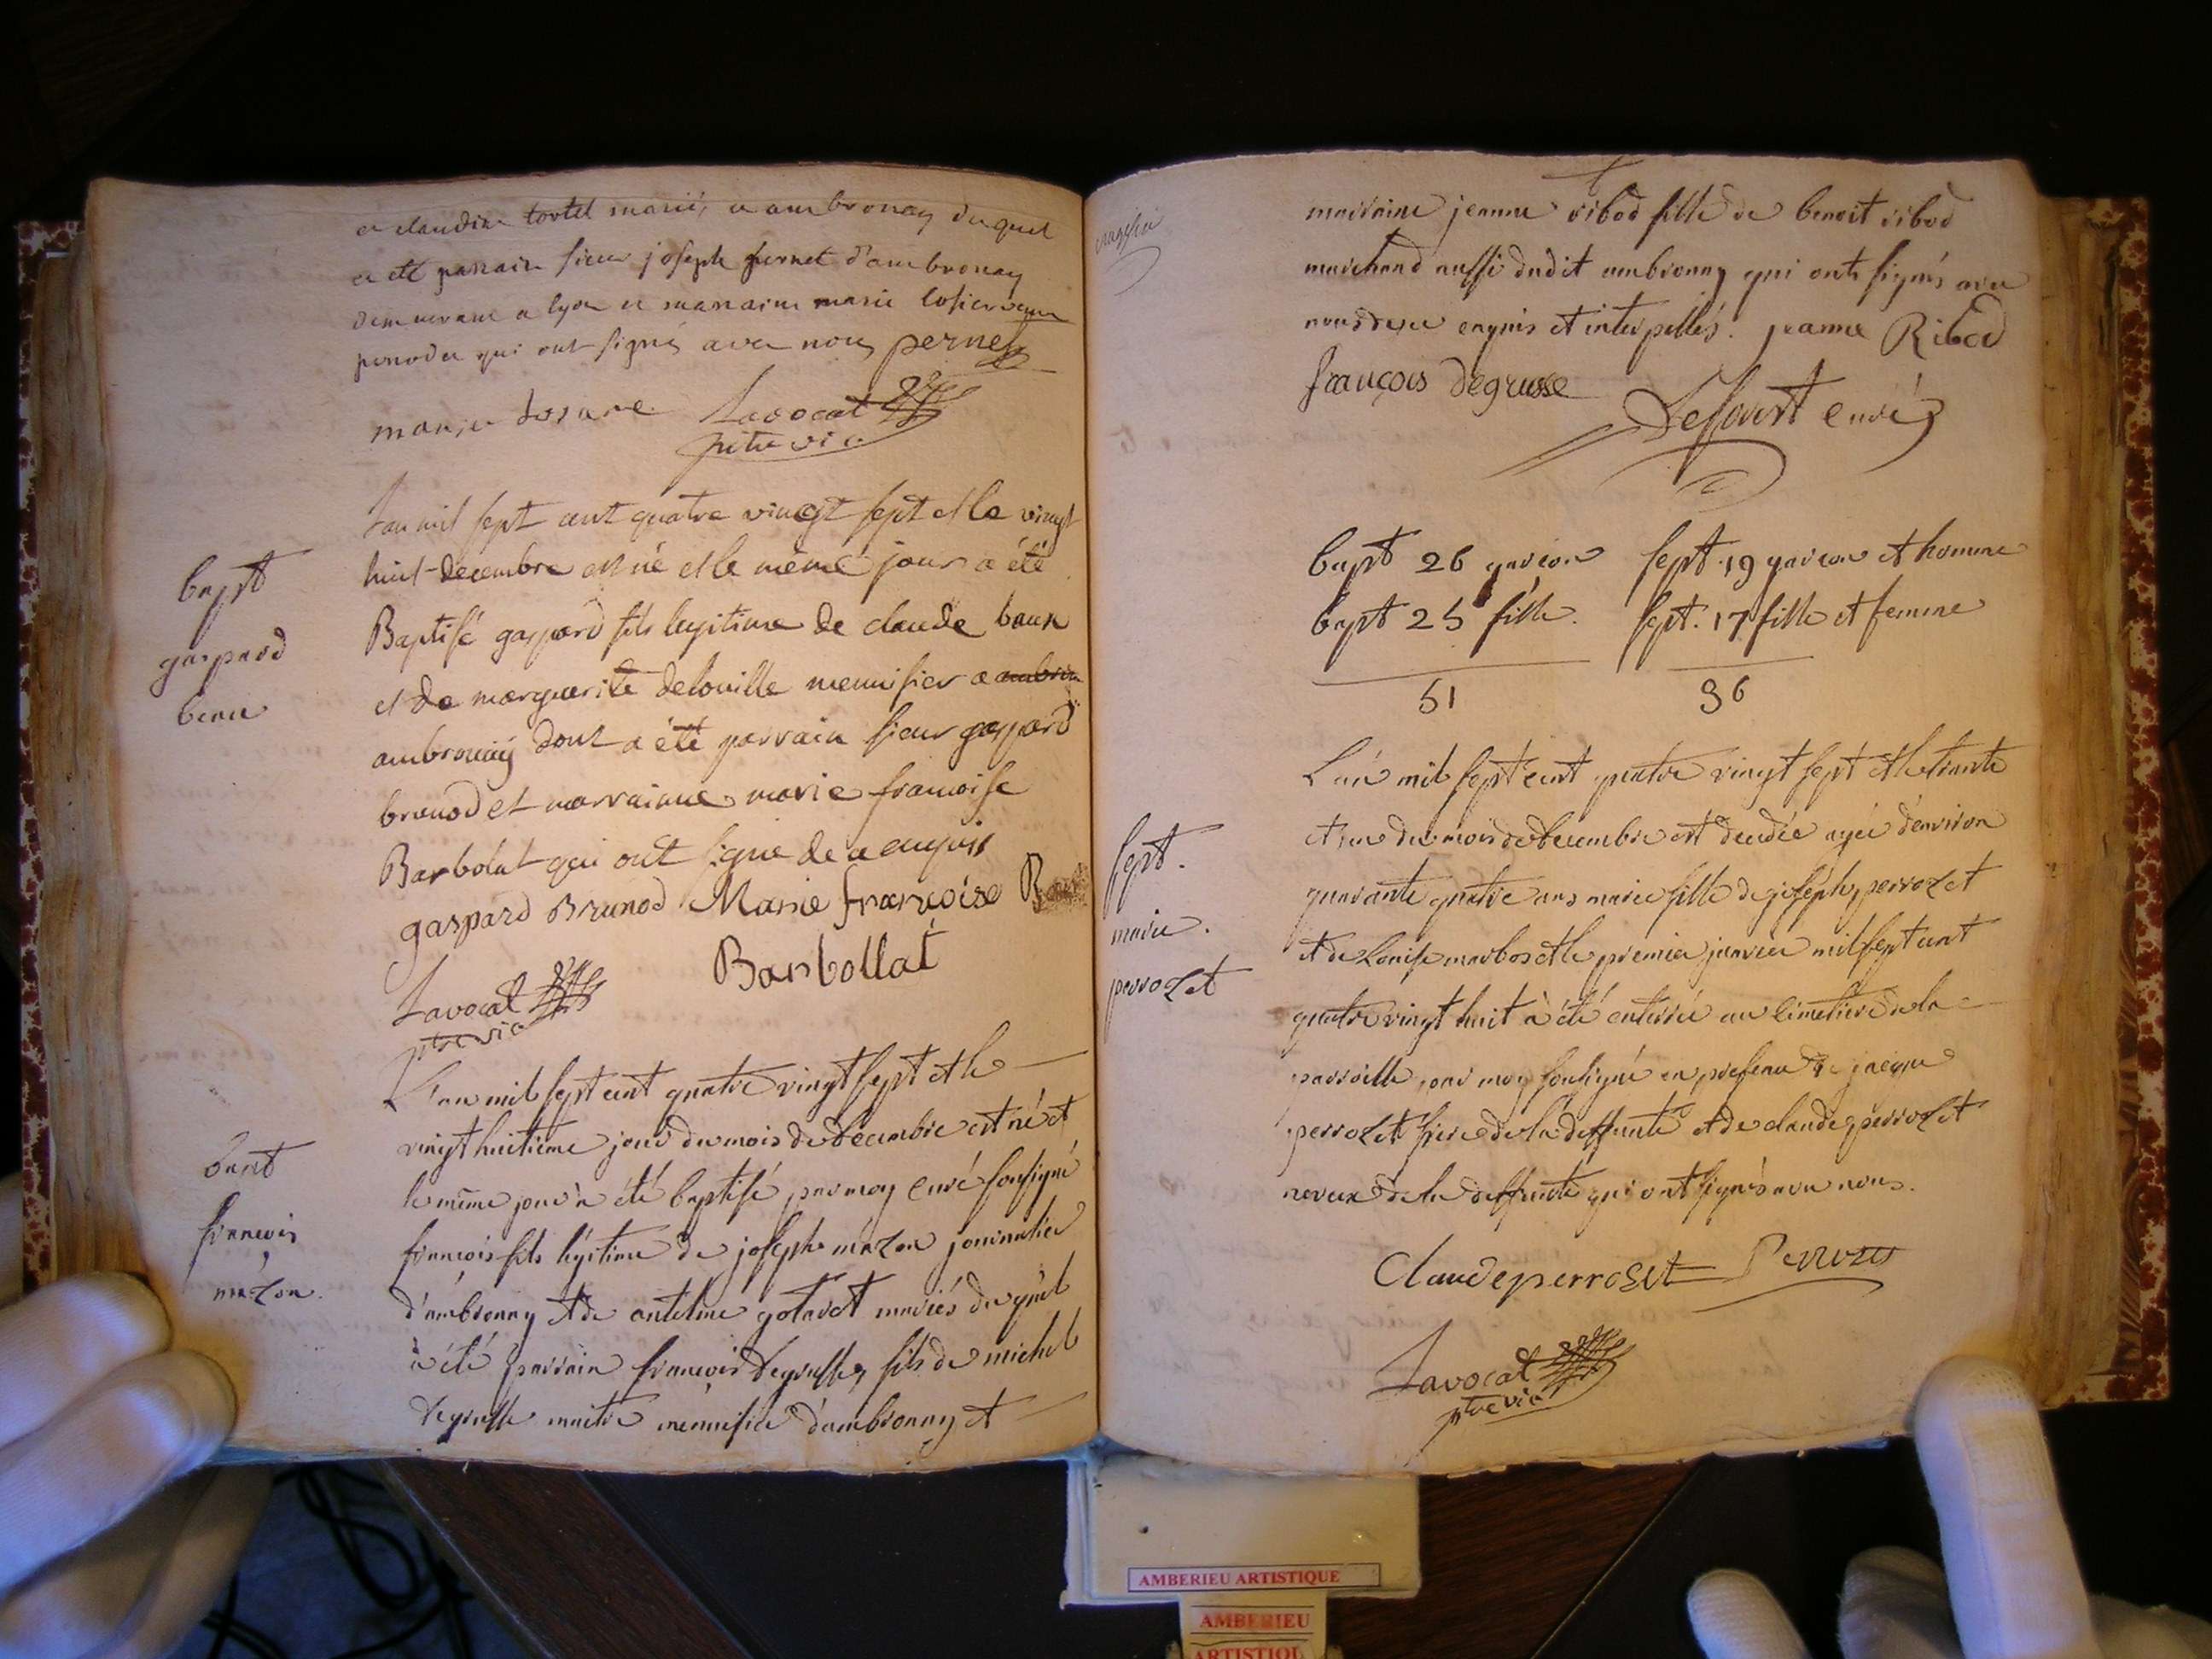 et claudine tortel mariés a ambronay duquel
a eté parrain sieur joseph pernet d'ambronay
demeurant a lyon et marraine marie
qui ont signés avec nous pernet
marie Lavocat
ptre vic
L'an mil sept cent quatre vingt sept et le vingt
huit decembre est né et le même jour a été
Baptisé gaspard fils legitime de claude baux
et de marguerite delouille menuisier a
ambronay dont a été parrain sieur gaspard
brunod et marrainne marie francoise
Barbolat qui ont signe de ce enquis
gaspard Brunod Marie françoise
Barbollat
Lavocat
ptre vic
bapt
gaspard
L'an mil sept cent quatre vingt sept et le
vingt huitieme jour du mois de decembre est né et
le même jour a été baptisé par moy curé soussigné
françois fils légitime de joseph mazon journalier
d'ambronay et de antelme gotaret mariés duquel
a été parrain françois degrusse, fils de michel
degrusse maitre menuisier d'ambronay et
bapt
francois
mazon.
marraine jeanne ribod fille de benoit ribod
marchand aussi dudit ambronay qui onts signés avec
nous de ce enquis et interpellés. jeanne Ribod
françois degrusse
curé
bapt 26 garcon sept. 19 garcon et homme
bapt 25 fille. sept. 17 fille et femme
51 36
L'an mil sept cent quatre vingt sept et le trente
et un du mois de decembre est decedée agée d'environ
quarante quatre ans marie fille de joseph perrozet
et de Louise marbos et le premier janvier mil sept cent
quatre vingt huit a été enterrée au cimetiere de la
parroisse par moy soussigné en presence de jacque
perrozet frere de la deffunte et de claude perrozet
neveux de la deffunte qui ont signés avec nous.
sept.
marie.
perrozet
Claude perroset Perrozet
Lavocat
ptre vic
AMBERIEU ARTISTIQUE
AMBERIEU
ARTISTIQU